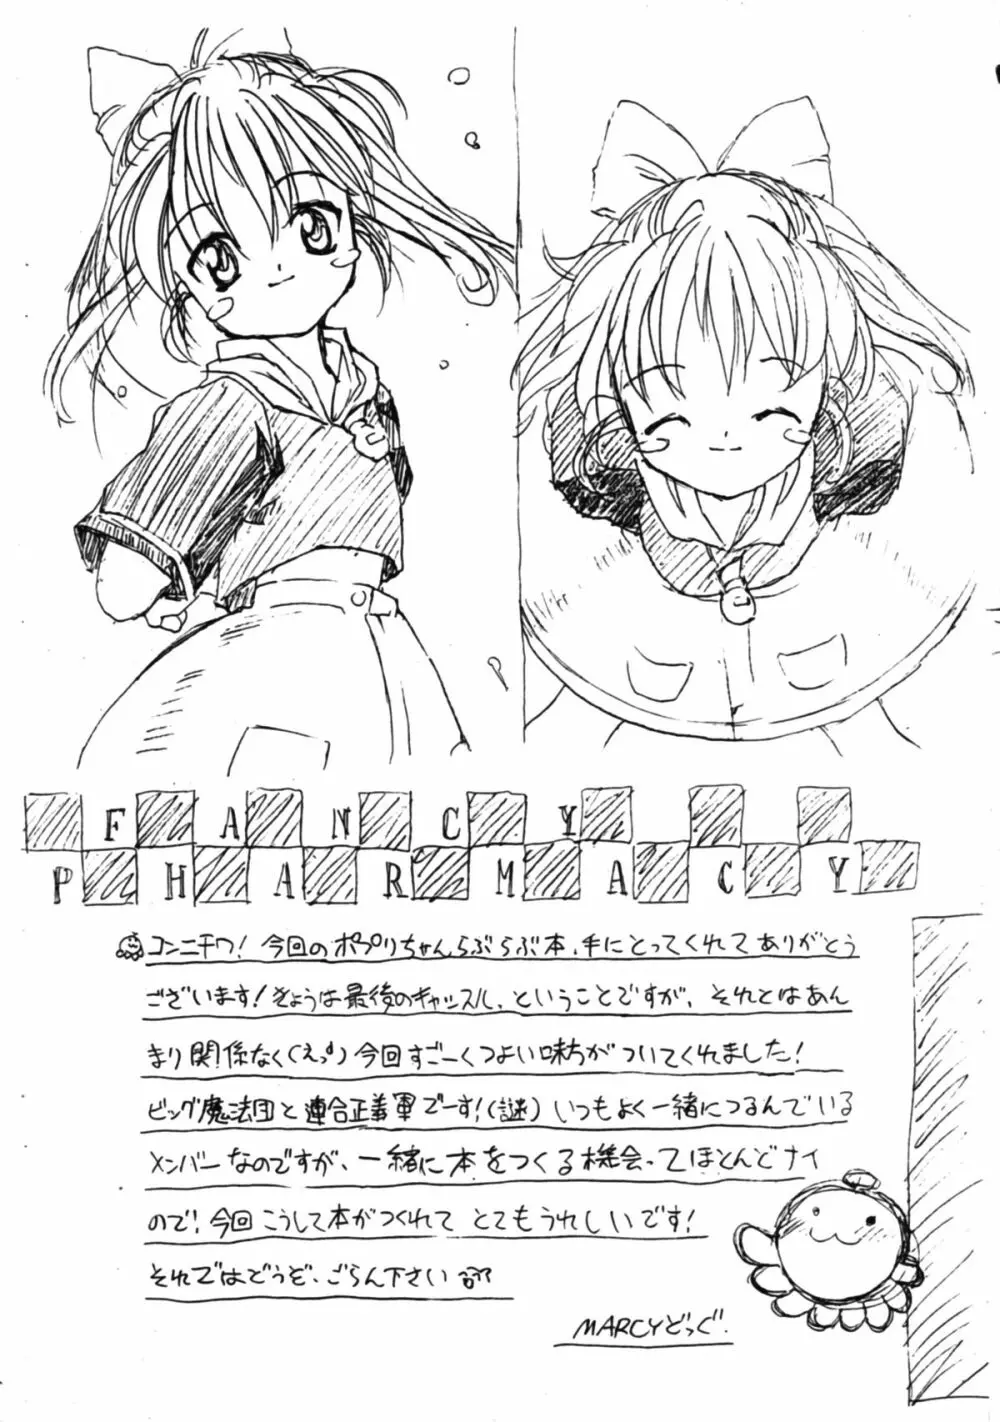 FANCY
PHARMACY
コンニチワ!今回のポプリちゃんらぶらぶ本、手にとってくれてありがとう
ございます!きょうは最後のキャッスル、ということですが、それとはあん
まり関係なく(えっ)今回すごーくつよい味方がついてくれました!
ビッグ魔法団と連合正義軍でーす!(謎)いつもよく一緒につるんでいる
メンバーなのですが、一緒に本をつくる機会ってほとんどナイ
ので!今回こうして本がつくれてとてもうれしいです!
それではどうぞ、ごらん下さい
MARCYどっぐ.